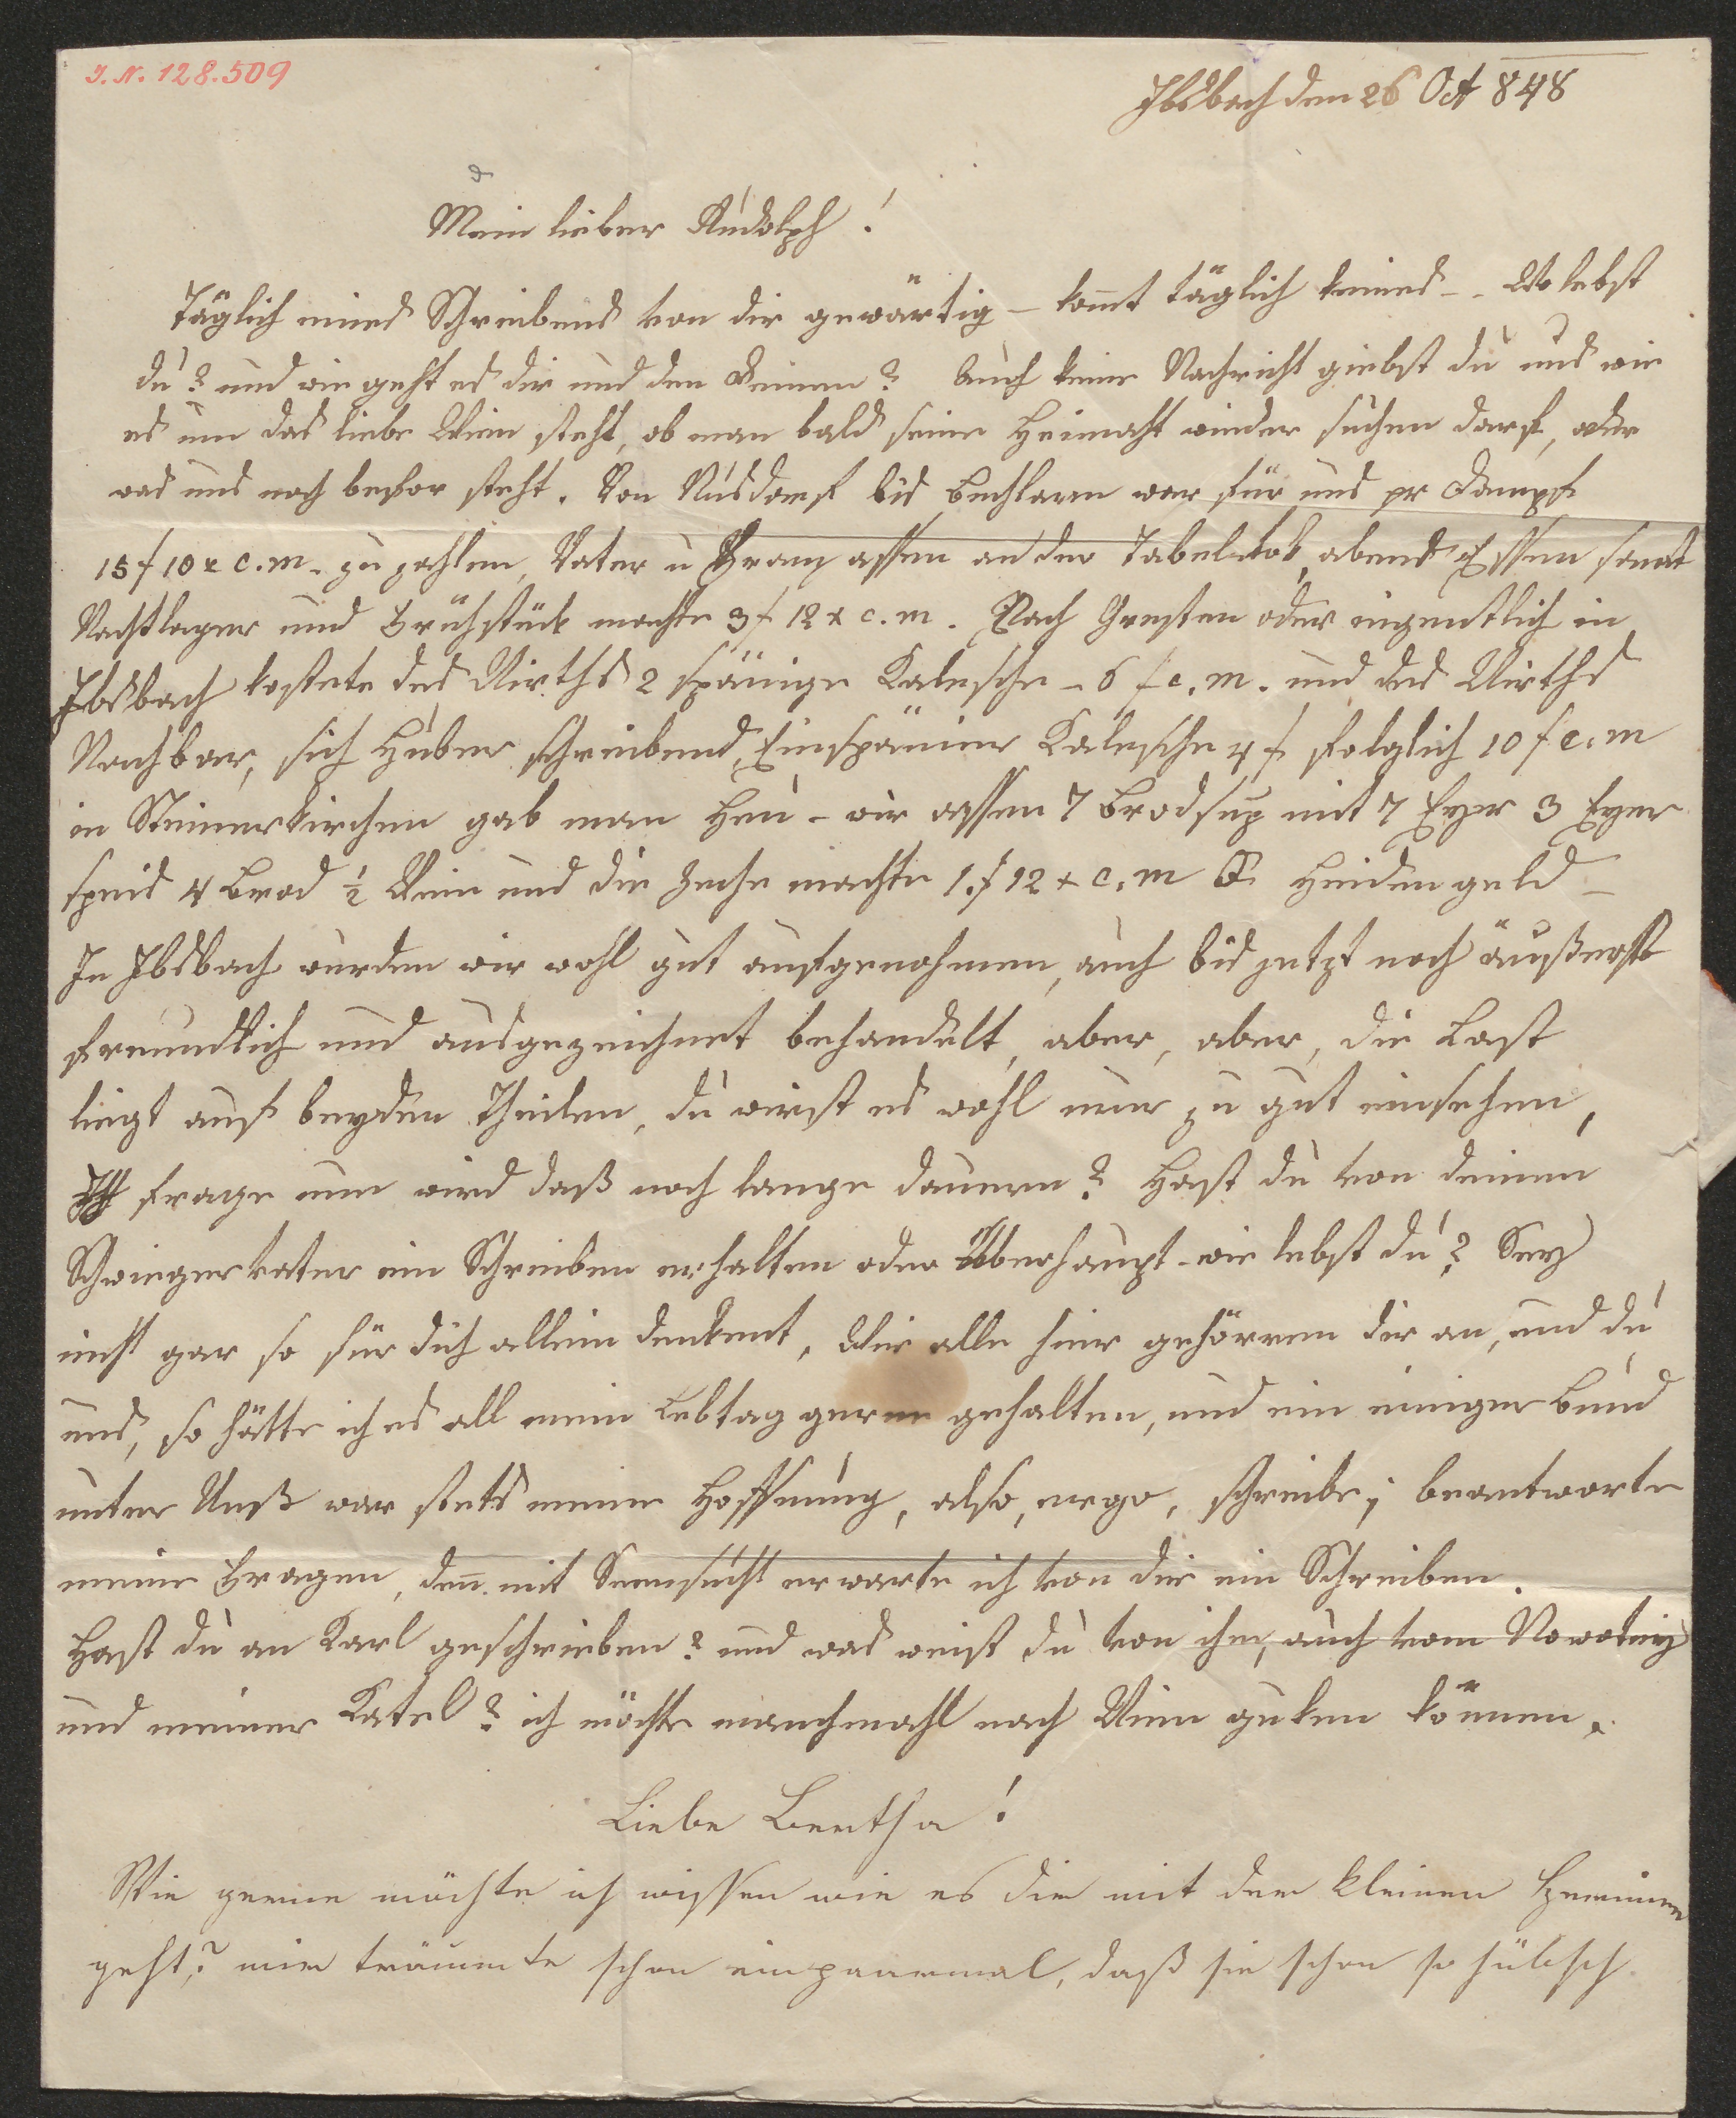 I. N. 128.509
Ibsbach den 26 Oct 848
Mein lieber Rudolph!
Täglich eines Schreibens von dir gewärtig – kommt täglich keines – Wo lebst
du? und wie geht es dir und den Deinen? Auch keine Nachricht giebst du uns wie
es um das liebe Wien steht, ob man bald seine Heimath wieder suchen darf, oder
was uns noch befor steht. Von Nusdorf bis Bechlarn war für uns pr Dampf
15 f 10 x c. m. zu zahlen, Vater u Franz assen an der Tabeldok, abends Essen samt
Nachtlager und Frühstück machte 3 f 12 x c. m. Nach Gresten oder eigentlich in
Ibsbach kostete des Wirths 2 spänige Kalesche – 6 f c. m. und des Wirths
Nachbar, sich Huber schreibend, Einspänner Kalesche 4 f folglich 10 f c. m
in Steinerkirchen gab man Heu – wir assen 7 Brodsup mit 7 Eyer 3 Eyer
speis 4 Brod ½ Wein und die Zeche machte 1 f 12 x c. m Heidengeld –
In Ibsbach wurden wir wohl gut aufgenohmen, auch bis jetzt noch äußerst
freundlich und ausgezeichnet behandelt, aber, aber, die Last
liegt auf beyden Theilen, du wirst es wohl nur zu gut einsehen,
Ich frage nun wird daß noch lange dauern? Hast du von deinem
Schwiegervater ein Schreiben erhalten oder Überhaupt – wie lebst du? Sey
nicht gar so für dich allein denkent, Wir alle hier gehörren dir an, und du
uns, so hätte ich es all mein Lebtag gerne gehalten, und ein einiger Bund
unter Unß war stets meine Hoffnung, also, ergo, schreibe, beantworte
meine Fragen, denn mit Seensucht erwarte ich von dir ein Schreiben.
Hast du an Karl geschrieben? und was weist du von ihm, auch vom Nowotny
und meiner Katel? ich möchte manchmahl nach Wien guken können.
Liebe Bertha!
Wie gerne möchte ich wissen wie es dir mit der kleinen Hermine
geht? mir träumte schon einpaarmal, daß sie schon so hübsch